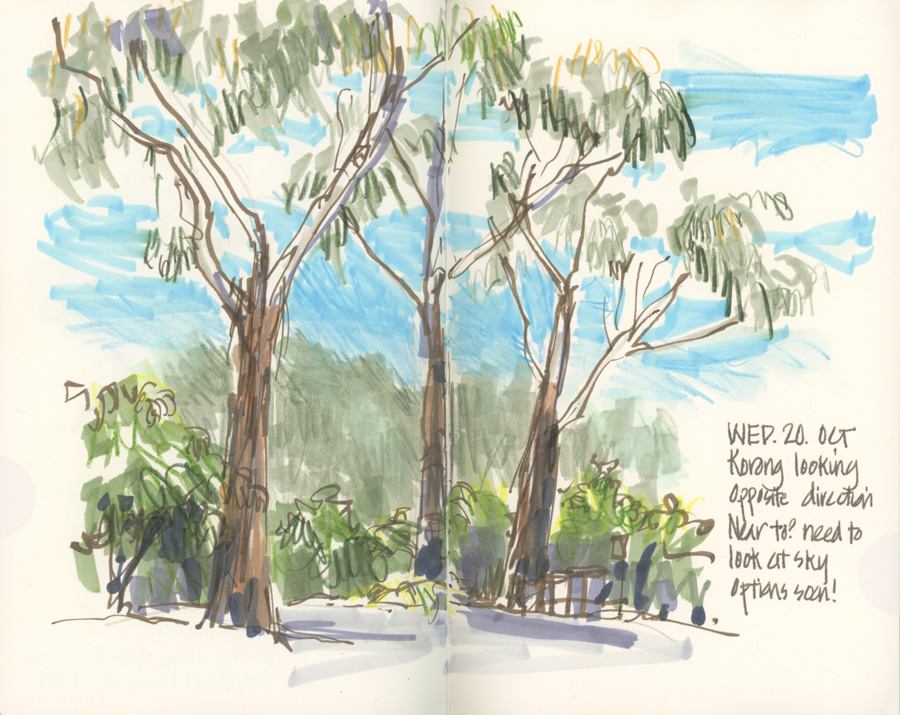 WED. 20. OCT
Korong looking
opposite direction
Near to? need to
look at sky
options soon!